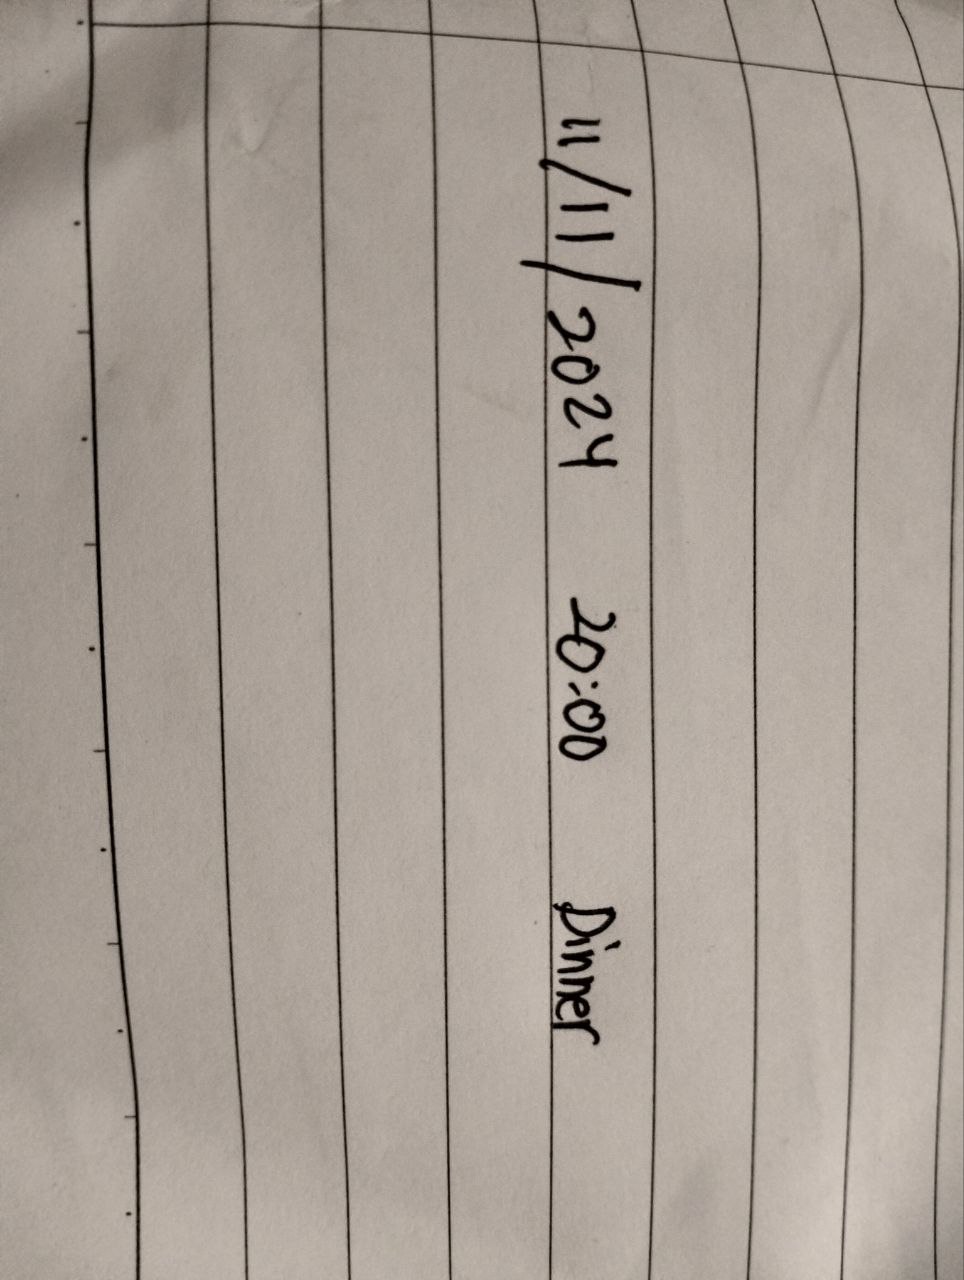 11/11/2024 20:00 Dinner